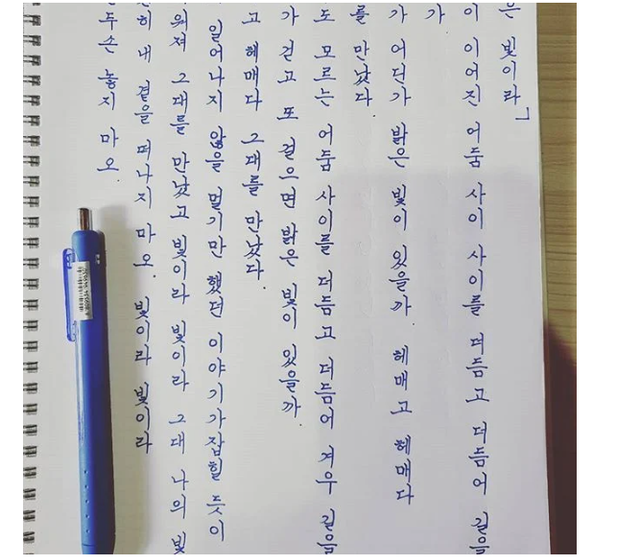 은 빛이라」
이 이어진 어둠 사이 사이를 더듬고 더듬어 길을
가
가 어딘가 밝은 빛이 있을까 헤매고 헤매다
를 만났다.
도 모르는 어둠 사이를 더듬고 더듬어 겨우 길을
가 걷고 또 걸으면 밝은 빛이 있을까.
고 헤매다 그대를 만났다.
일어나지 않을 멀기만 했던 이야기가 잡힐 듯이
워져 그대를 만났고 빛이라 빛이라 그대 나의 빛
히 내 곁을 떠나지 마오. 빛이라 빛이라
두손 놓지 마오.